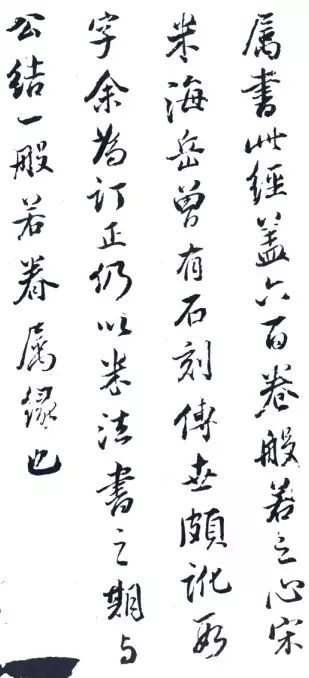 属書此經蓋六百卷般若之心宋
米海岳曾有石刻傳世頗訛數
字余為訂正仍以法書之期与
公結一般若眷属緣也